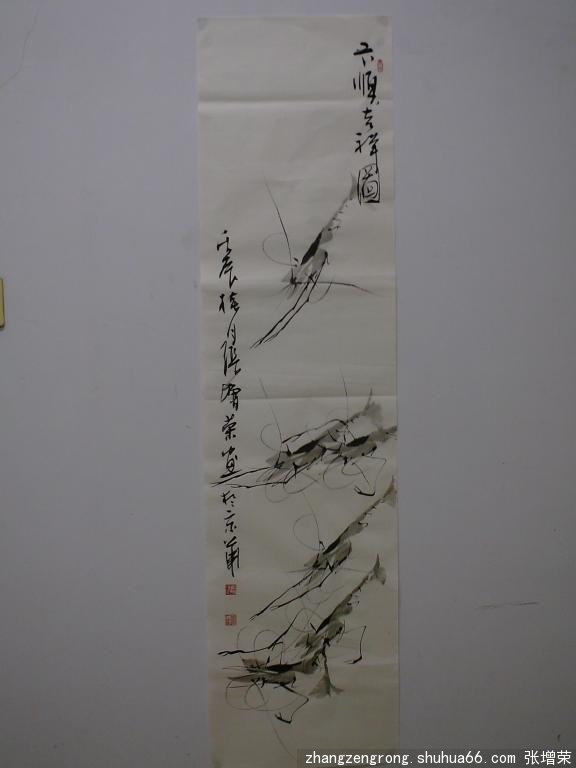 六顺吉祥圖
壬辰桃月張增荣画於京華
zhangzengrong.shuhua66.com 张增荣